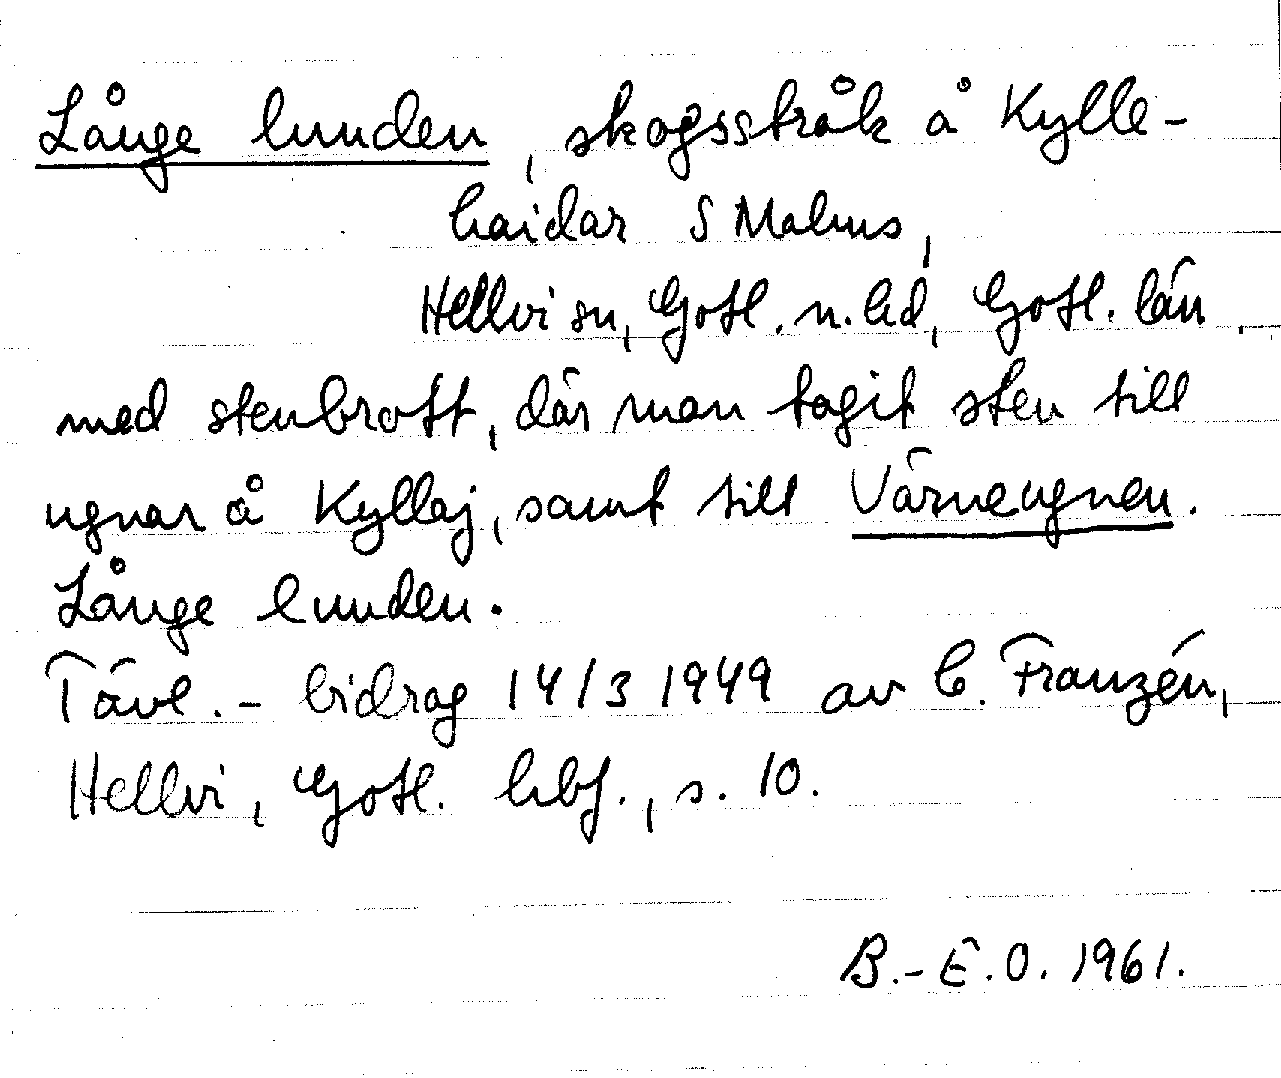 Långe lunden, skogsstråk å Kylle-
haidar S Malms,
Hellvi sn, Gotl. n. hd, Gotl. län
med stenbrott, där man tagit sten till
ugnar å Kyllaj, samt till Värneugnen.
Långe lunden.
Tävl. - bidrag 14/3 1949 av C. Franzén,
Hellvi, Gotl. hbf., s. 10.
B.-E.O. 1961.